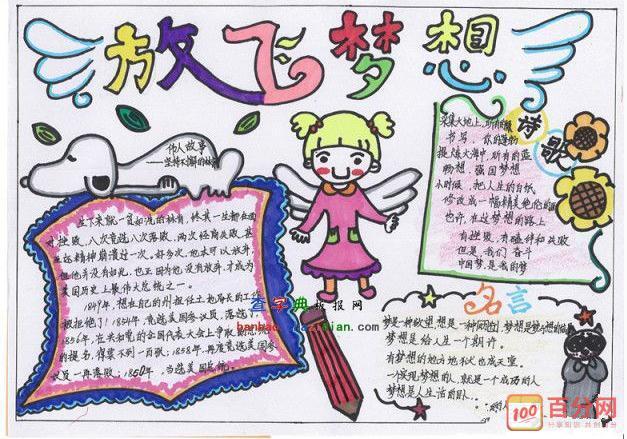 放飞梦想
伟人故事
——坚持不懈的林肯
生下来就一贫如洗的林肯，终其一生都在面
对挫败，八次竞选八次落败，两次经商失败，甚
至还精神崩溃过一次。好多次，他本可以放弃，
但他并没有如此，也正因为他没有放弃，才成为
美国历史上最伟大总统之一。
诗歌
采集大地上，所有的绿
书写，你的
提炼大海中，所有的蓝
畅想，强国梦想
小时候，把人生的白纸
修改成一幅精美绝伦的画
也许，在这梦想的路上
有挫败，有磕绊和失败
但是，我们奋斗
中国梦，是我的梦
名言
梦想是给人生一个期许。
有梦想的地方地狱也成天堂。
一个实现梦想的人，就是一个成功的人
梦想是人生活的
查字典板报网
1849年，想在自己的州担任土地局长的工作
被拒绝了！1854年，竞选美国参议员，落选了！
1856年，在共和党的全国代表大会上争取副总统
的提名，得票不到一百张；1858年，再度竞选美国参
议员—再度落败；1860年，当选美国总统。
100
百分网